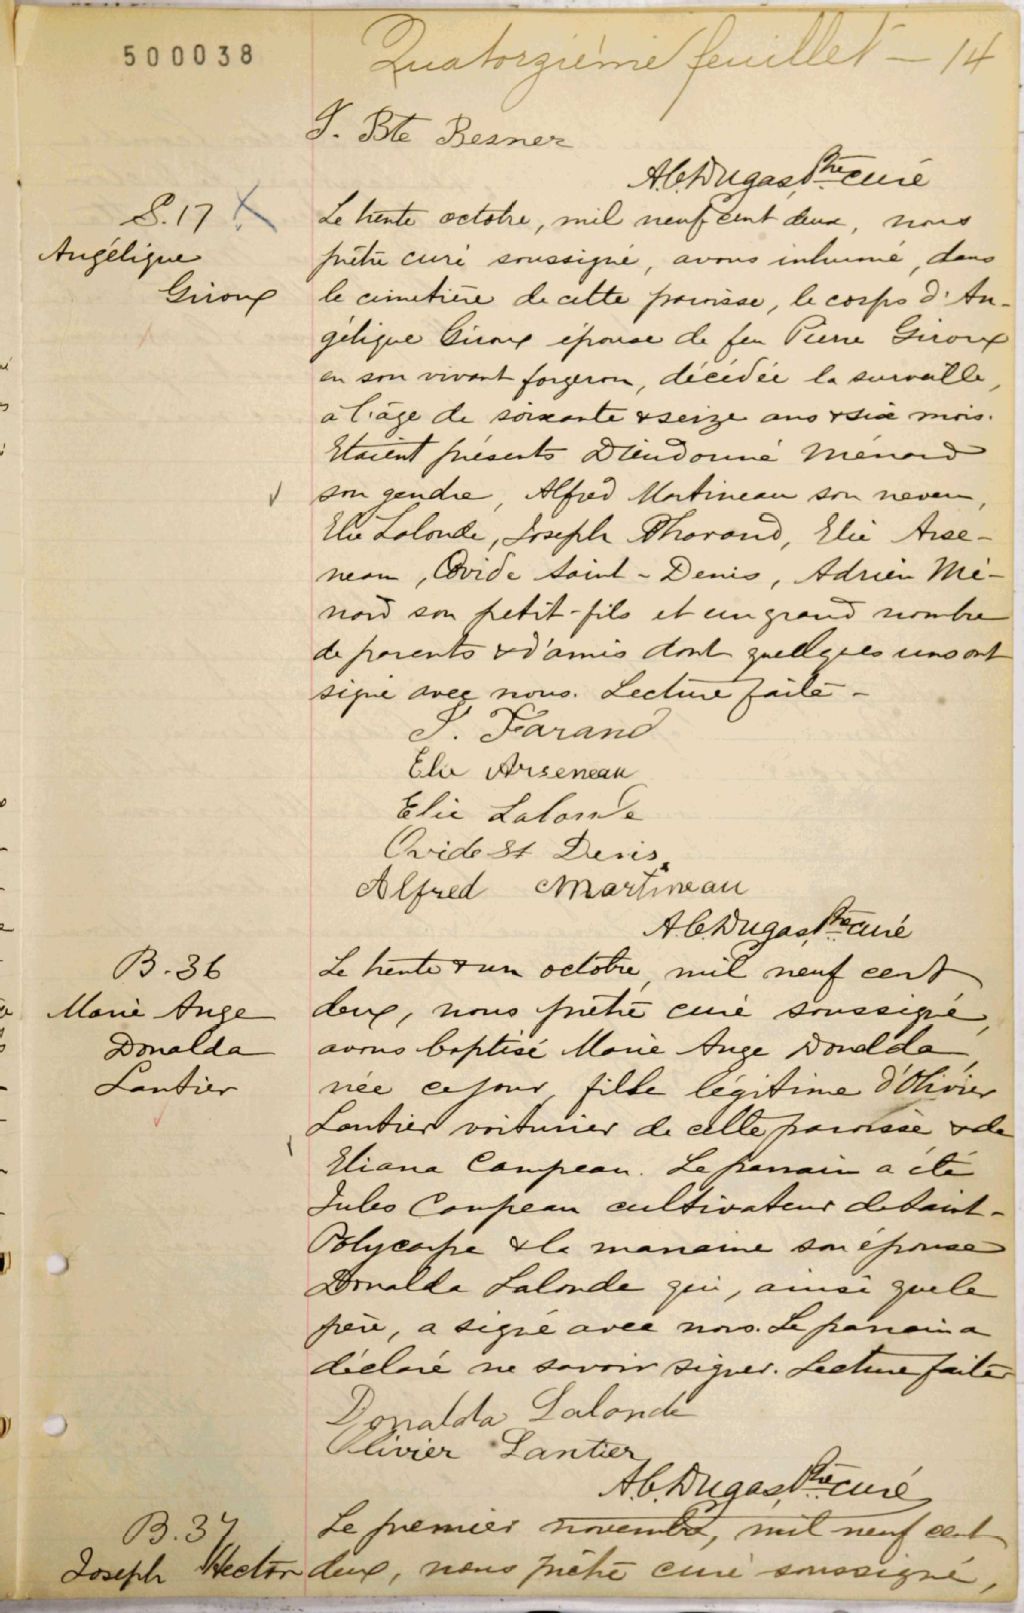 500038
Quatorzième feuillet — 14
J. Bte Besner
A.C. Dugas, Ptre curé
S.17
Angélique
Giroux
Le trente octobre, mil neuf cent deux, nous
prêtre curé soussigné, avons inhumé, dans
le cimetière de cette paroisse, le corps d'An-
gélique Giroux épouse de feu Pierre Giroux
en son vivant forgeron, décédée la surveille,
à l'âge de soixante & seize ans & six mois.
Etaient présents Dieudonné Ménard
son gendre, Alfred Martineau son neveu,
Elie Lalonde, Joseph Pharand, Elie Arse-
neau, Ovide Saint-Denis, Adrien Mé-
nard son petit-fils et un grand nombre
de parents & d'amis dont quelques uns ont
signé avec nous. Lecture faite -
J. Farand
Elie Arseneau
Elie Lalonde
Ovide St Denis
Alfred Martineau
A.C. Dugas, Ptre curé
B.36
Marie Ange
Donalda
Lantier
Le trente & un octobre, mil neuf cent
deux, nous prêtre curé soussigné,
avons baptisé Marie Ange Donalda,
née ce jour, fille légitime d'Olivier
Lantier voiturier de cette paroisse & de
Eliana Campeau. Le parrain a été
Jules Campeau cultivateur de Saint-
Polycarpe & la marraine son épouse
Donalda Lalonde qui, ainsi que le
père, a signé avec nous. Le parrain a
déclaré ne savoir signer. Lecture faite
Donalda Lalonde
Olivier Lantier
A.C. Dugas, Ptre curé
B.37
Joseph Hector
Le premier novembre, mil neuf cent
deux, nous prêtre curé soussigné,